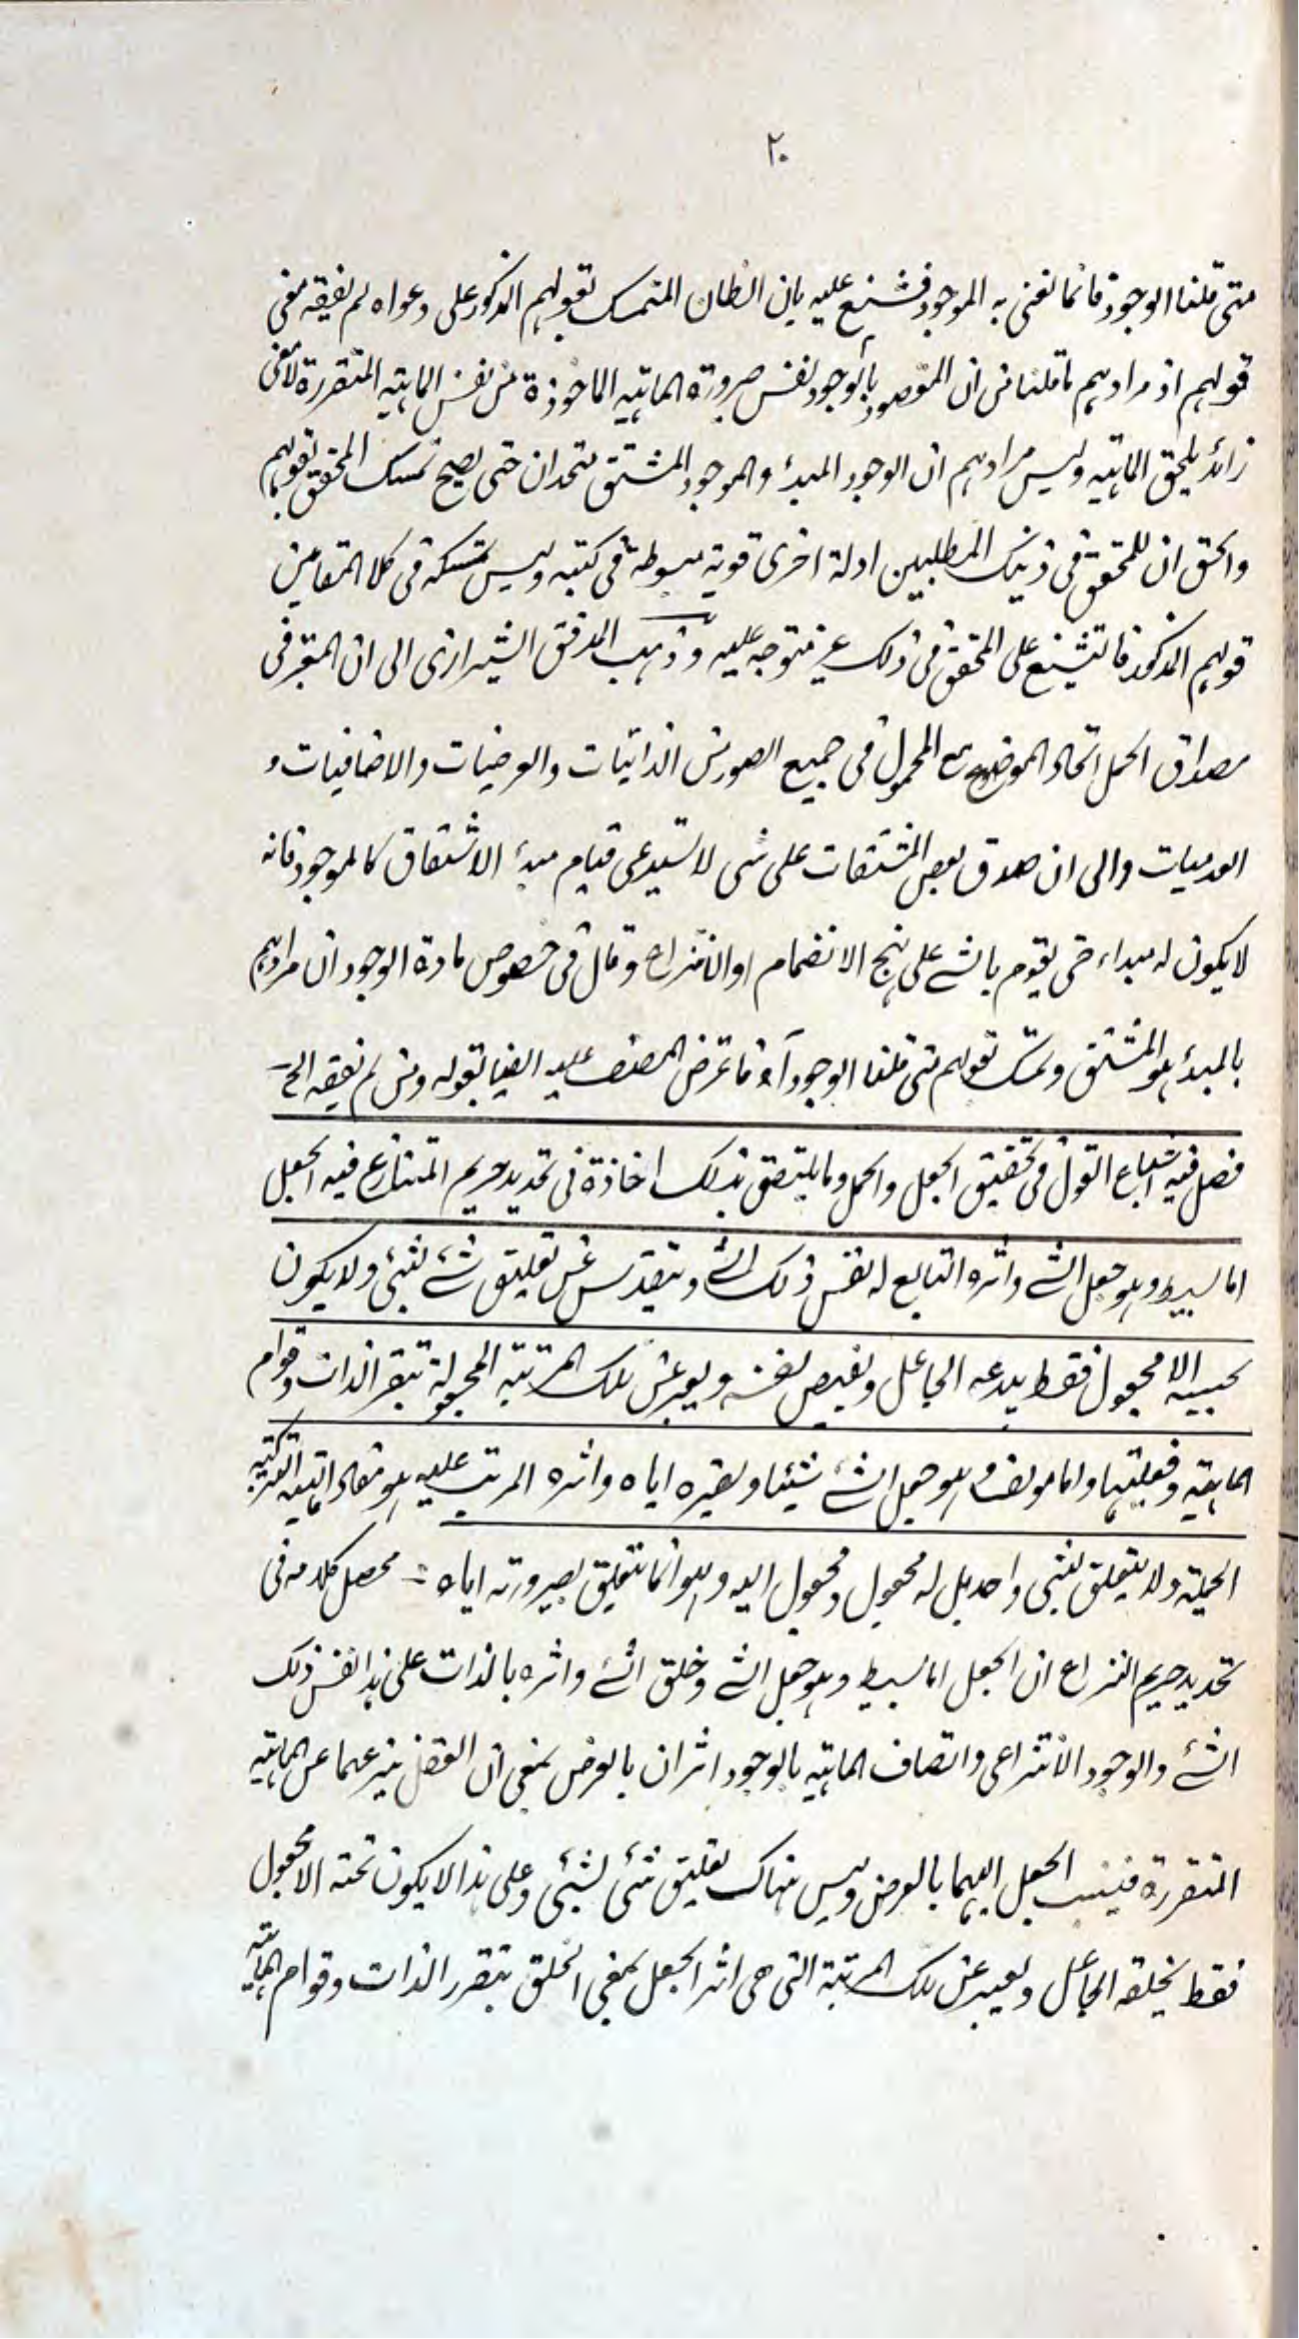 ٢٠
متى قلنا الوجود فانما نعنى به الموجود فشنع عليه بان الظان المتمسك بقولهم المذكور على دعواه لم يفقه معنى
قولهم اذ مرادهم ما قلنا من ان المقصود بالوجود نفس صيرورة الماهية الماخوذة من نفس الماهية المتقررة لا معنى
زائد يلحق الماهية وليس مرادهم ان الوجود المبدأ والموجود المشتق متحدان حتى يصح تمسك المحقق بقولهم
والحق ان للمحقق فى ذينك المطلبين ادلة اخرى قوية مبسوطة فى كتبه وليس تمسكه فى كلا المقامين
قولهم المذكور فالتشنيع على المحقق فى ذلك غير متوجه عليه وذهب المدقق الشيرازى الى ان المعتبر فى
مصداق الحمل اتحاد الموضوع مع المحمول فى جميع الصور من الذاتيات والعرضيات والاضافيات و
العدميات والى ان صدق بعض المشتقات على شى لا يستدعى قيام مبدأ الاشتقاق كالموجود فانه
لا يكون له مبداء حتى يقوم بالشے على نهج الانضمام او الانتزاع وقال فى خصوص مادة الوجود ان مرادهم
بالمبدأ هو المشتق وتمسك بقولهم متى قلنا الوجود آه فاتعرض المصنف عليه ايضا بقوله ومن لم يفقه الخ
فصل فيه اشباع القول فى تحقيق الجعل والحمل وما يلتصق بذلك اخاذة فى تحديد حريم المتنازع فيه الجعل
اما بسيط وهو جعل الشے واثره التابع له نفس ذلك الشے ويتقدس عن تعليق شے بشئ ولا يكون
بحسبه الا مجعول فقط يبدعه الجاعل ويفيض نفسه ويعبر عن تلك المرتبة المجعولة بتقرر الذات وقوام
الماهية وفعليتها واما مؤلف وهو جعل الشے شيئا وتصييره اياه واثره المرتب عليه هو مفاد الهيئة التركيبية
الحملية ولا يتعلق بشى واحد بل له مجعول ومجعول اليه وهو انما يتعلق بصيرورته اياه محصل كلامه فى
تحديد حريم النزاع ان الجعل اما بسيط وهو جعل الشے وخلق الشے واثره بالذات على هذا نفس ذلك
الشے والوجود الانتزاعى واتصاف الماهية بالوجود اثران بالعرض بمعنى ان العقل ينزعهما عن الماهية
المتقررة فينسب الجعل اليهما بالعرض وليس هناك تعليق شئ لشئ وعلى هذا لا يكون تحته الا مجعول
فقط يخلقه الجاعل ويعبر عن تلك المرتبة التى هى اثر الجعل بمعنى الخلق بتقرر الذات وقوام الماهية